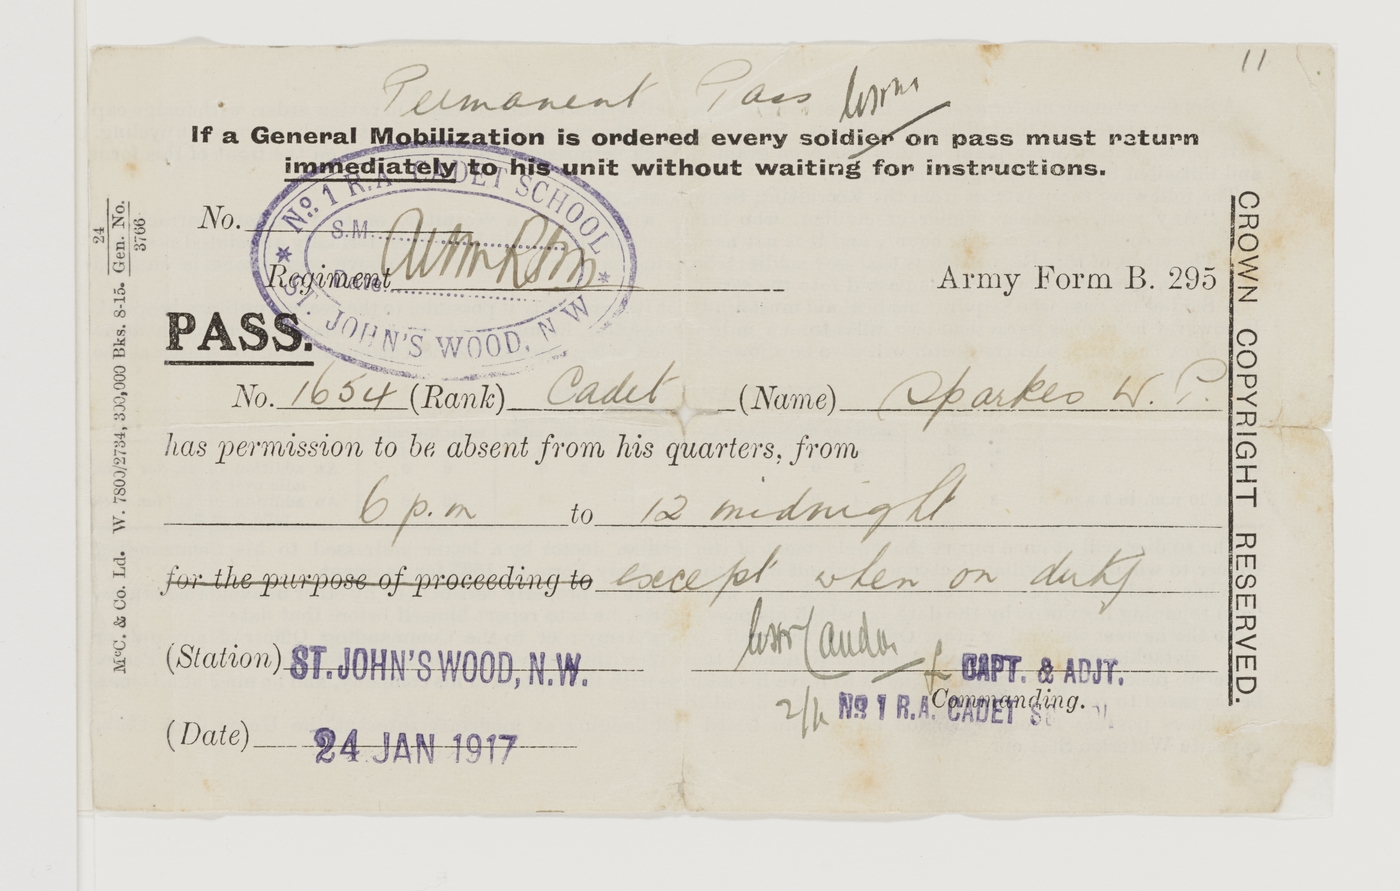 11
Permanent Pass
If a General Mobilization is ordered every soldier on pass must return
immediately to his unit without waiting for instructions.
No. 1 R.A. CADET SCHOOL
ST. JOHN'S WOOD, N.W
S.M.
Date
No.
Regiment
Army Form B. 295
PASS.
No. 1654 (Rank) Cadet (Name) Sparkes W. P.
has permission to be absent from his quarters, from
6 p.m to 12 midnight
for the purpose of proceeding to except when on duty
(Station) ST. JOHN'S WOOD, N.W.
CAPT. & ADJT.
Commanding.
No 1 R.A. CADET
(Date) 24 JAN 1917
CROWN COPYRIGHT RESERVED.
McC. & Co. Ld. W. 7800/2734, 300,000 Bks. 8-15. Gen. No.
24
3766